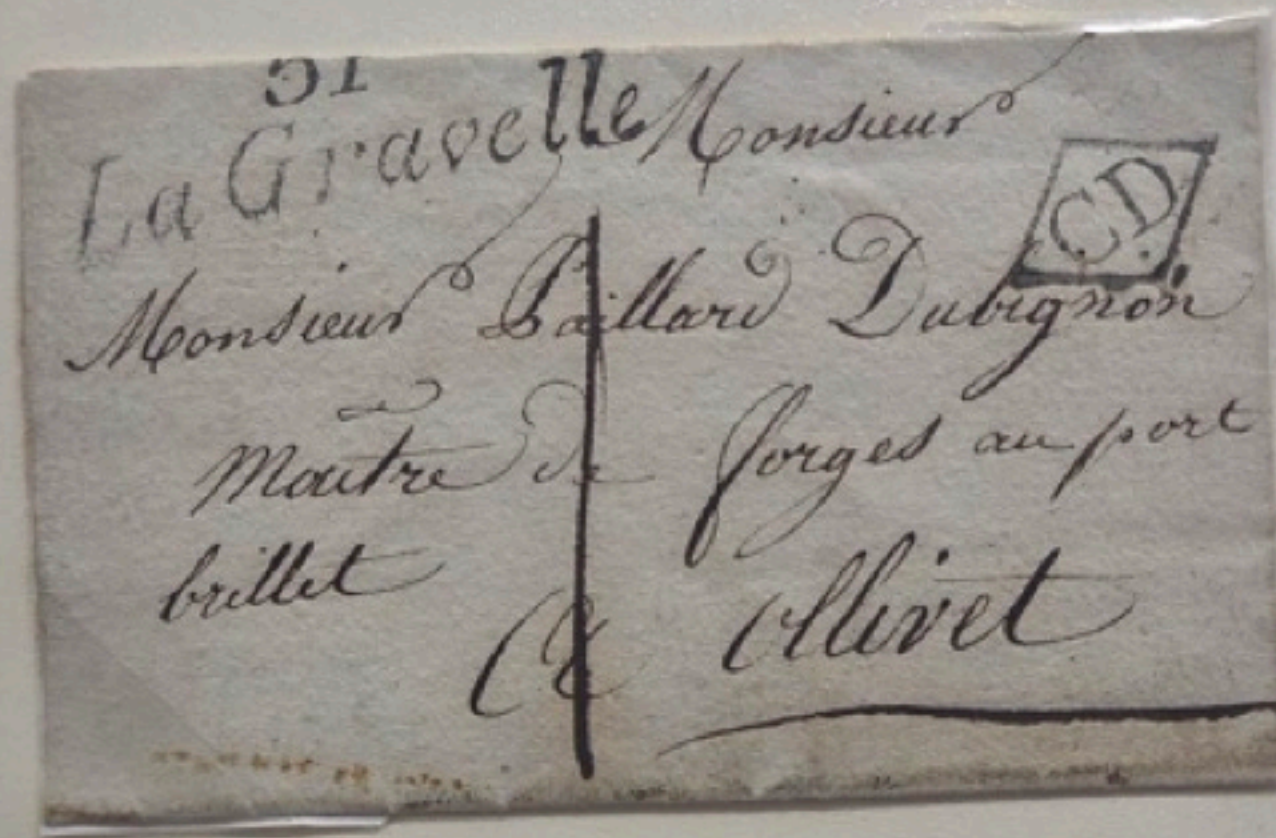 51
La Gravelle
Monsieur
CD
Monsieur Paillard Dubignon
Maître de forges au port
brillet
A Ollivet